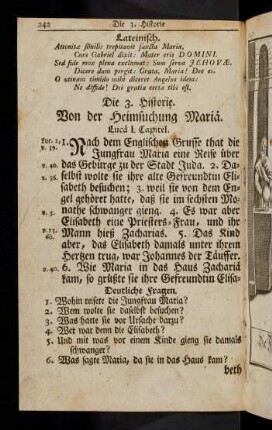 242 Die 3. Historie
Lateinisch.
Attonitæ similis trepitavit sancta Maria,
Cum Gabriel dixit: Mater eris DOMINI.
Sed fide mox plena exclamat: Sum serva JEHOVÆ.
Dicere dum pergit: Grata, Maria! Deo es.
O utinam timido mihi diceret Angelus idem:
Ne diffide! Dei gratia certa tibi est.
Die 3. Historie.
Von der Heimsuchung Mariä.
Lucä I. Capitel.
1. Nach dem Englischen Grusse that die
v. 39. Jungfrau Maria eine Reise über
v. 40. das Gebirge zu der Stadt Juda. 2. Da-
v. 36. selbst wolte sie ihre alte Gefreundtin Eli-
sabeth besuchen; 3. weil sie von dem En-
gel gehöret hatte, daß sie im sechsten Mo-
v. 5. nathe schwanger gieng. 4. Es war aber
Elisabeth eine Priesters-Frau, und ihr
v. 13. Mann hieß Zacharias. 5. Das Kind
60. aber, das Elisabeth damals unter ihrem
Hertzen trug, war Johannes der Täuffer.
v. 40. 6. Wie Maria in das Haus Zachariä
kam, so grüßte sie ihre Gefreundtin Elisa-
Deutliche Fragen.
1. Wohin reisete die Jungfrau Maria?
2. Wem wolte sie daselbst besuchen?
3. Was hatte sie vor Ursache darzu?
4. Wer war denn die Elisabeth?
5. Und mit was vor einem Kinde gieng sie damals
schwanger?
6. Was sagte Maria, da sie in das Haus kam?
beth